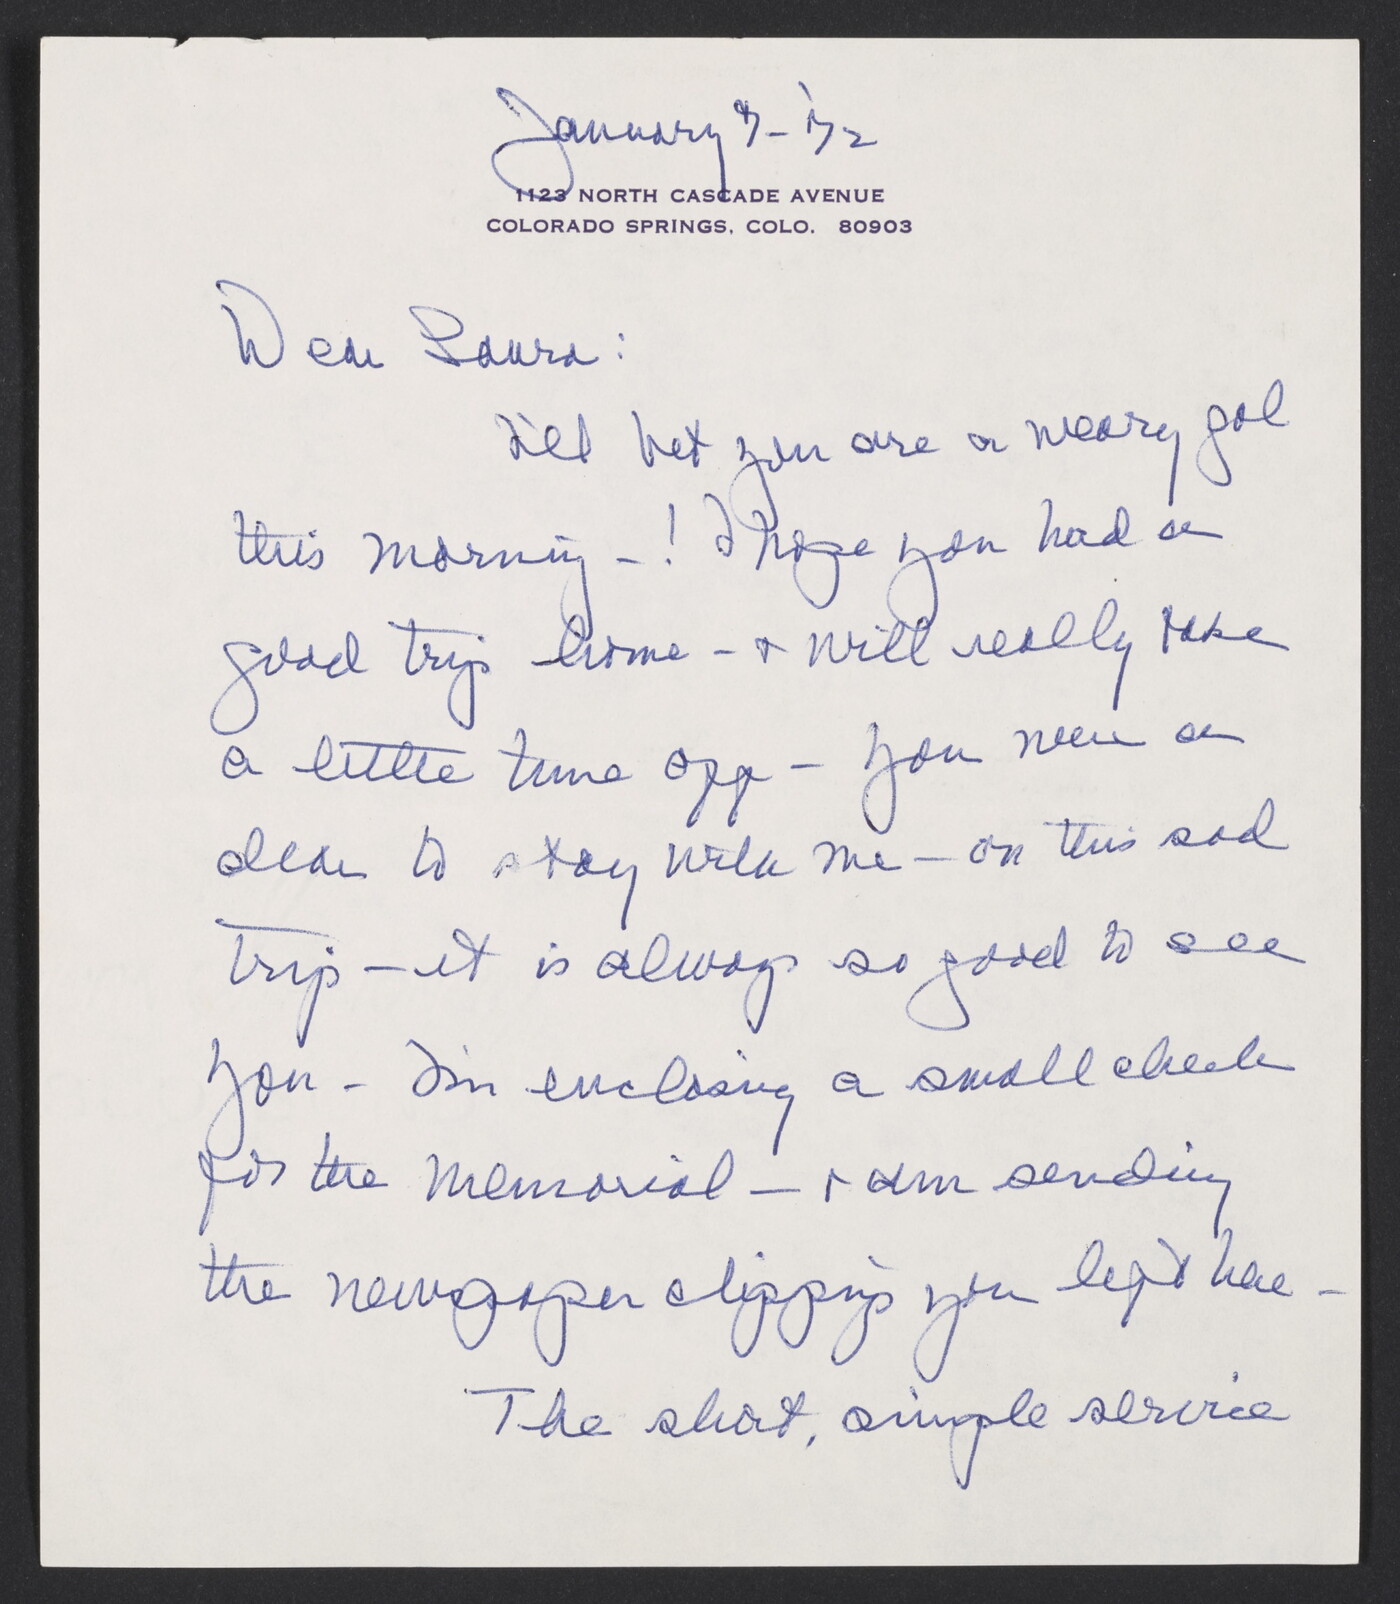 January 7 - '72
1123 NORTH CASCADE AVENUE
COLORADO SPRINGS, COLO. 80903
Dear Laura:
I'll bet you are a weary gal
this morning - ! I hope you had a
good trip home - + will really take
a little time off - you were a
dear to stay with me - on this sad
trip - it is always so good to see
you - I'm enclosing a small check
for the Memorial - + am sending
the newspaper clippings you left here -
The short, simple service